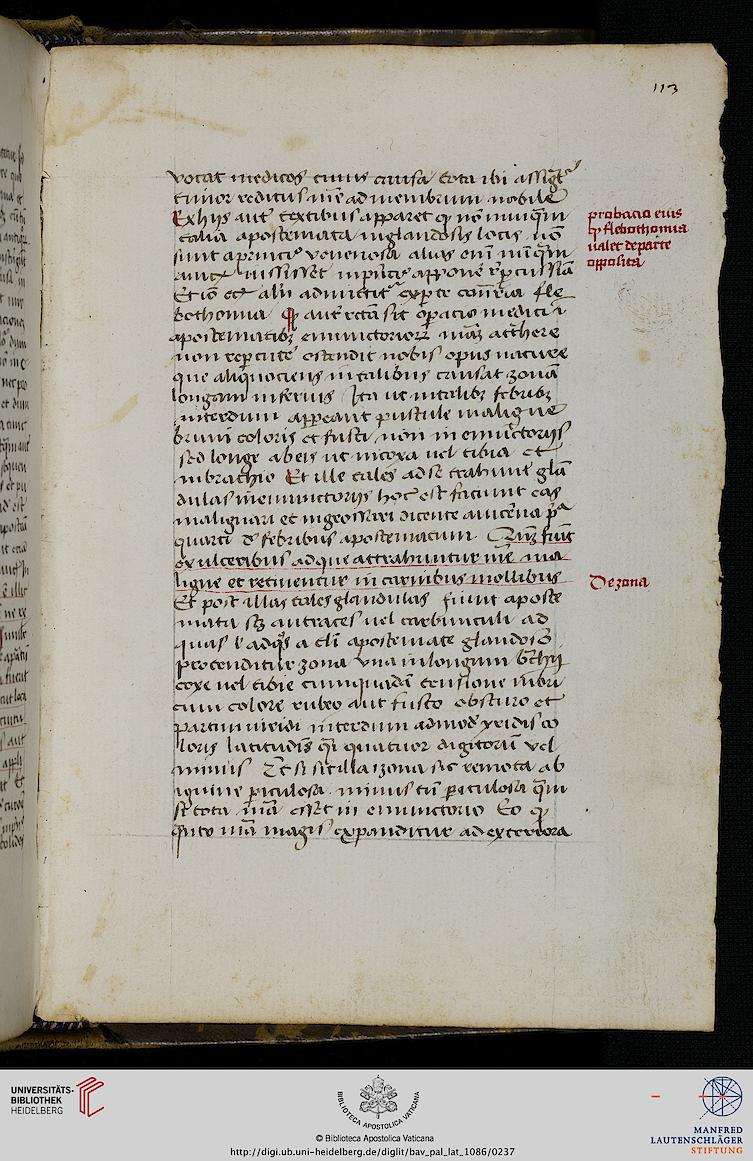 113
vocat medicos cuius causa tota ibi assigt̄
timor reditus mē ad membrum nobile
Ex hijs aut̄ textibus apparet ꝙ nō nunqm̄
talia apostemata in glandosis locis nō
sunt aprincī venenosa alias enī nunqm̄
auicē iussisset in principio apponē repcussiuā
Et iō ec̄ alij admictit ex parte cont̄ria fle
bothomia ꝙ aut̄ recta sit opatio medici ī
apostematibꝫ emunctorioꝝ mām attrhere
non repcutē ostendit nobis opus nature
que aliquociens in talibus causat zonā
longam inferius Ita ut in talibꝫ febribꝫ
interdum appeant pustule maligne
bruni coloris et fusci non in emūctorijs
sed longe ab eis ut in coxa vel tibia et
in brachio Et ille tales ad se trahunt glā
dulas in emunctorijs hoc est faciunt eas
malignari et ingrossari dicente auicēna pᵃ
quarti de febribus apostematum Cum fiūt
ex ulceribus ad que attrahuntur mē ma
ligne et retinentur in carnibus mollibus
Et post illas tales glandulas fiunt aposte
mata scꝫ antraces vel carbunculi ad
quas ł ad qđ a cł̄i apostemate glandoso
protenditur zona una in longum brᵃchij
coxe vel tibie cum quadā tensione mēbri
cum colore rubeo aut fusco obscuro et
partim viridi interdum admodū yridis co
loris latitudīs qī quatuor digitorū vel
minus Et si sit illa zona sic remota ab
iguine piculosa minus tn̄ piculosa qm̄
si tota mā esset in emunctorio Eo ꝙ
qnto mā magis expanditur ad exteriora
probacio eius
ꝙ flebothomia
ualet de parte
opposita
De zona
UNIVERSITÄTS-
BIBLIOTHEK
HEIDELBERG
BIBLIOTHECA APOSTOLICA VATICANA
© Biblioteca Apostolica Vaticana
http://digi.ub.uni-heidelberg.de/diglit/bav_pal_lat_1086/0237
MANFRED
LAUTENSCHLÄGER
STIFTUNG